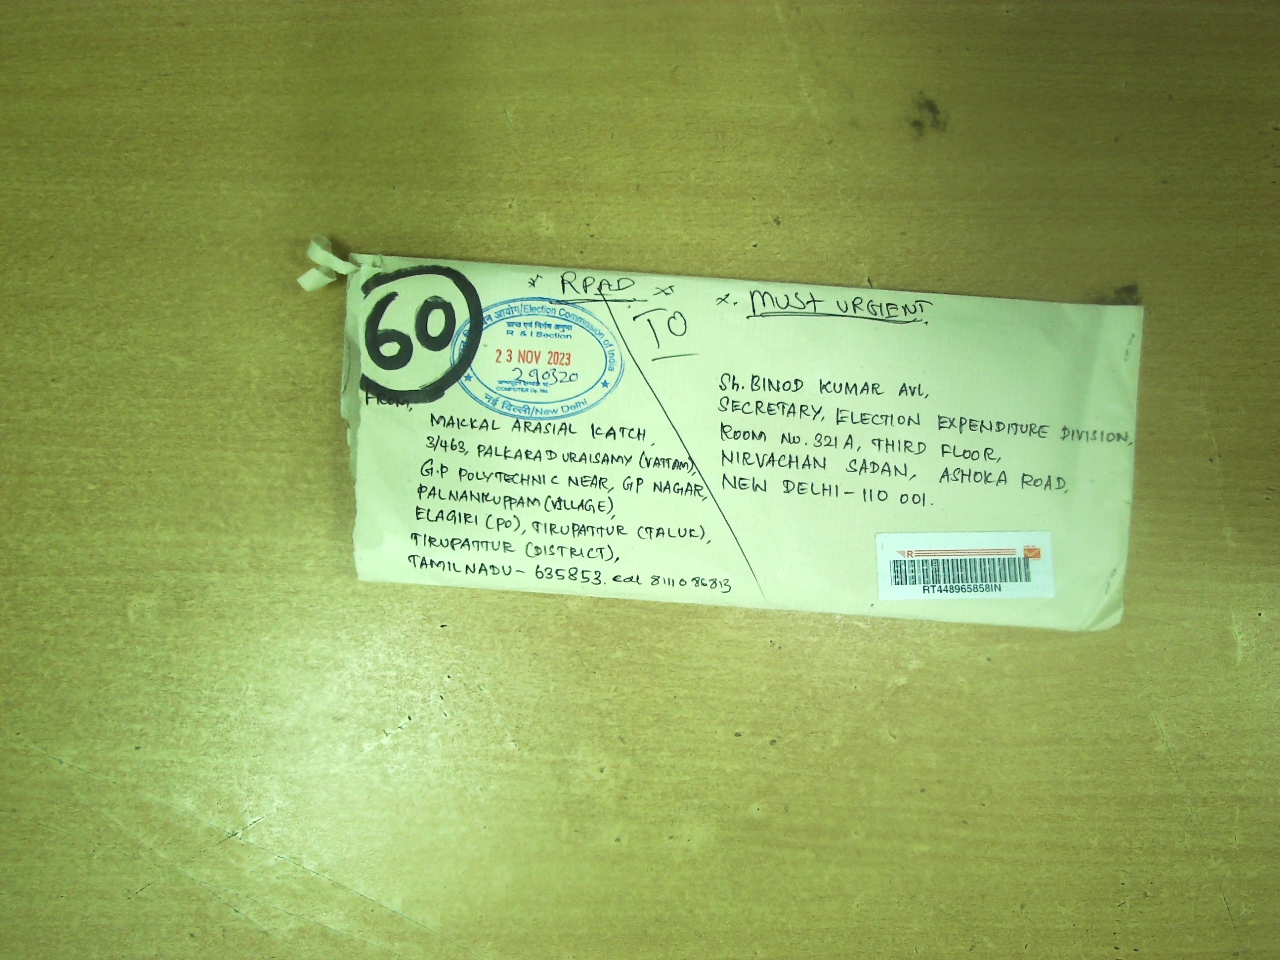 60
* RPAD *
TO
*. MUST URGENT
आयोग/Election Commission of India
प्राप्त एवं निर्गम अनुभाग
R & I Section
23 NOV 2023
290320
COMPUTER Dy. No.
नई दिल्ली/New Delhi
FROM,
MAKKAL ARASIAL KATCH,
3/463, PALKARADURAISAMY (VATTAM),
G.P POLYTECHNIC NEAR, GP NAGAR,
PALNANKUPPAM (VILLAGE),
ELAGIRI (PO), TIRUPATTUR (TALUK),
TIRUPATTUR (DISTRICT),
TAMILNADU - 635853. cell 8111086813
Sh. BINOD KUMAR AVL,
SECRETARY, ELECTION EXPENDITURE DIVISION,
ROOM No. 321A, THIRD FLOOR,
NIRVACHAN SADAN, ASHOKA ROAD,
NEW DELHI - 110 001.
R
RT448965858IN